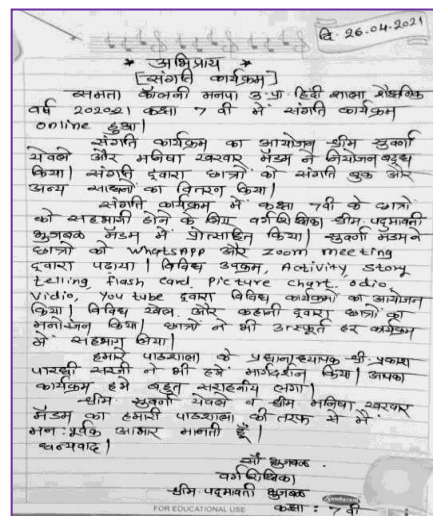 दि. 26.04.2021
* अभिप्राय *
[संगति कार्यक्रम]
समता कॉलनी मनपा उ. प्रा. हिंदी शाला शैक्षणिक
वर्ष 202021 कक्षा 7 वी में संगति कार्यक्रम
online हुआ|
संगति कार्यक्रम का आयोजन श्रीम सुवर्णा
येवले और मनिषा खरवार मॅडम ने नियोजनबद्ध
किया| संगति द्वारा छात्रों को संगति बुक और
अन्य साधनों का वितरण किया|
संगति कार्यक्रम में कक्षा 7वी के छात्रों
को सहभागी होने के लिए वर्गशिक्षिका श्रीम पद्मावती
भुजबळ मॅडम में प्रोत्साहित किया| सुवर्णा मॅडमने
छात्रों को WhatsApp और Zoom meeting
द्वारा पढाया| विविध उपक्रम, Activity Story
telling flash card, Picture chart, odio,
Vidio, You tube द्वारा विविध कार्यक्रमों का आयोजन
किया| विविध खेल और कहानी द्वारा छात्रों का
मनोरंजन किया| छात्रों ने भी उत्स्फूर्त हर कार्यक्रम
में सहभाग लिया|
हमारे पाठशाला के प्रधानाध्यापक श्री. प्रकाश
पारधी सरजी ने भी हमें मार्गदर्शन किया| आपका
कार्यक्रम हमे बहुत सराहनीय लगा|
श्रीम सुवर्णा येवले व श्रीम मनिषा खरवार
मॅडम का हमारी पाठशाला की तरफ से मैं
मन:पूर्वक आभार मानती हूँ|
धन्यवाद|
सौ भुजबळ
वर्गशिक्षिका
श्रीम. पद्मावती भुजबळ
कक्षा : 7 वी
FOR EDUCATIONAL USE